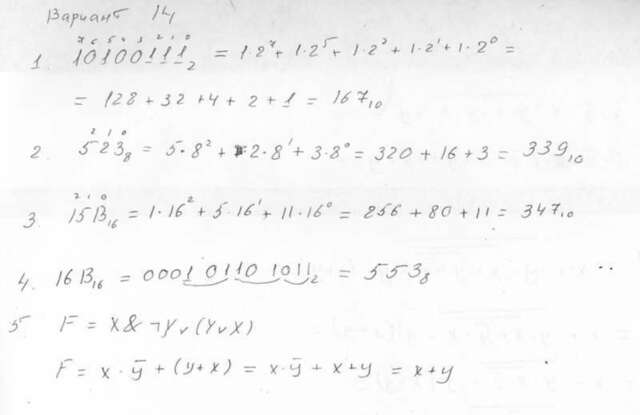 Вариант 14
7 6 5 4 3 2 1 0
1. 10100111₂ = 1·2⁷ + 1·2⁵ + 1·2² + 1·2¹ + 1·2⁰ =
= 128 + 32 + 4 + 2 + 1 = 167₁₀
2 1 0
2. 523₈ = 5·8² + 2·8¹ + 3·8⁰ = 320 + 16 + 3 = 339₁₀
2 1 0
3. 15B₁₆ = 1·16² + 5·16¹ + 11·16⁰ = 256 + 80 + 11 = 347₁₀
4. 16B₁₆ = 0001 0110 1011₂ = 553₈
5 F = X & ¬Y ∨ (Y ∨ X)
F = x · ȳ + (y + x) = x · ȳ + x + y = x + y